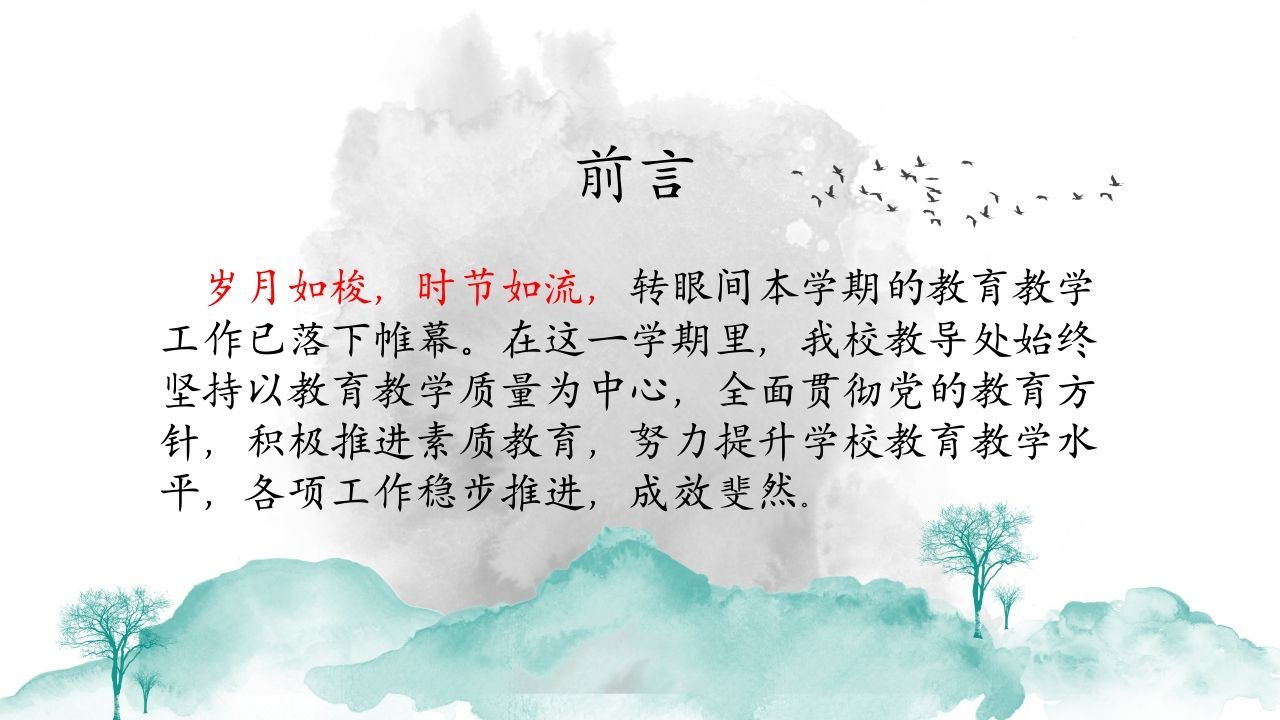 前言
岁月如梭，时节如流，转眼间本学期的教育教学
工作已落下帷幕。在这一学期里，我校教导处始终
坚持以教育教学质量为中心，全面贯彻党的教育方
针，积极推进素质教育，努力提升学校教育教学水
平，各项工作稳步推进，成效斐然。